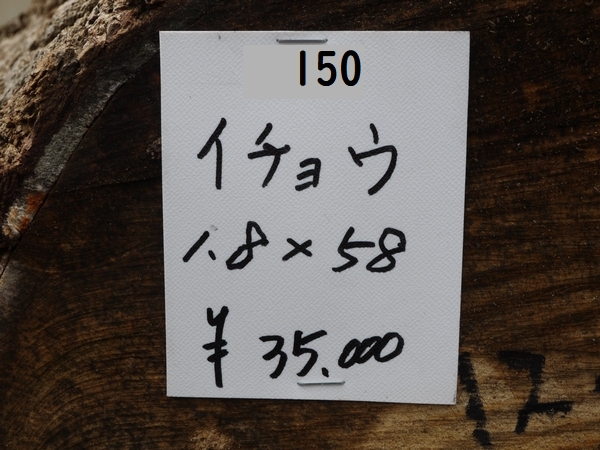 150
イチョウ
1.8×58
¥35.000
17